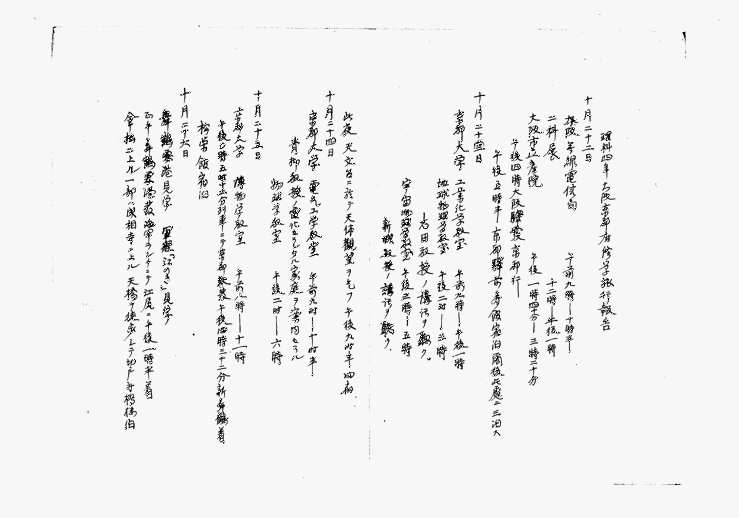 理科四年大阪京都府修学旅行報告
十月二十二日
大阪無線電信局 午前九時―十時半
二科展 十二時―午后一時
大阪市立産院 午後一時四十分―三時二十分
午後四時大阪駅発京都行
午後五時半京都駅前 館宿泊 此処ニ三泊ス
十月二十三日
京都大学 工業化学教室 午前九時―午後一時
地球物理学教室 午後二時―三時
志田教授ノ講話ヲ聴ク
宇宙物理学教室 午後三時―五時
新城教授ノ講話ヲ聴ク
此夜天文台ニ於テ天体観望ヲナス 午後九時半帰宿
十月二十四日
京都大学 電気工学教室 午前九時―十時半
青柳教授ノ電化セラレタル家庭ヲ案内セラル
物理学教室 午後二時―六時
十月二十五日
京都大学 博物学教室 午前八時―十一時
午後〇時五十五分列車ニテ京都駅発午後四時三十二分新舞鶴着
松栄館宿泊
十月二十六日
舞鶴要港見学 軍艦 見学
正午舞鶴要港 ランチニテ江尻ニ午後一時半着
傘松ニ上ル一部ハ成相寺ニ上ル 天橋ヲ徒歩シテ切戸 泊